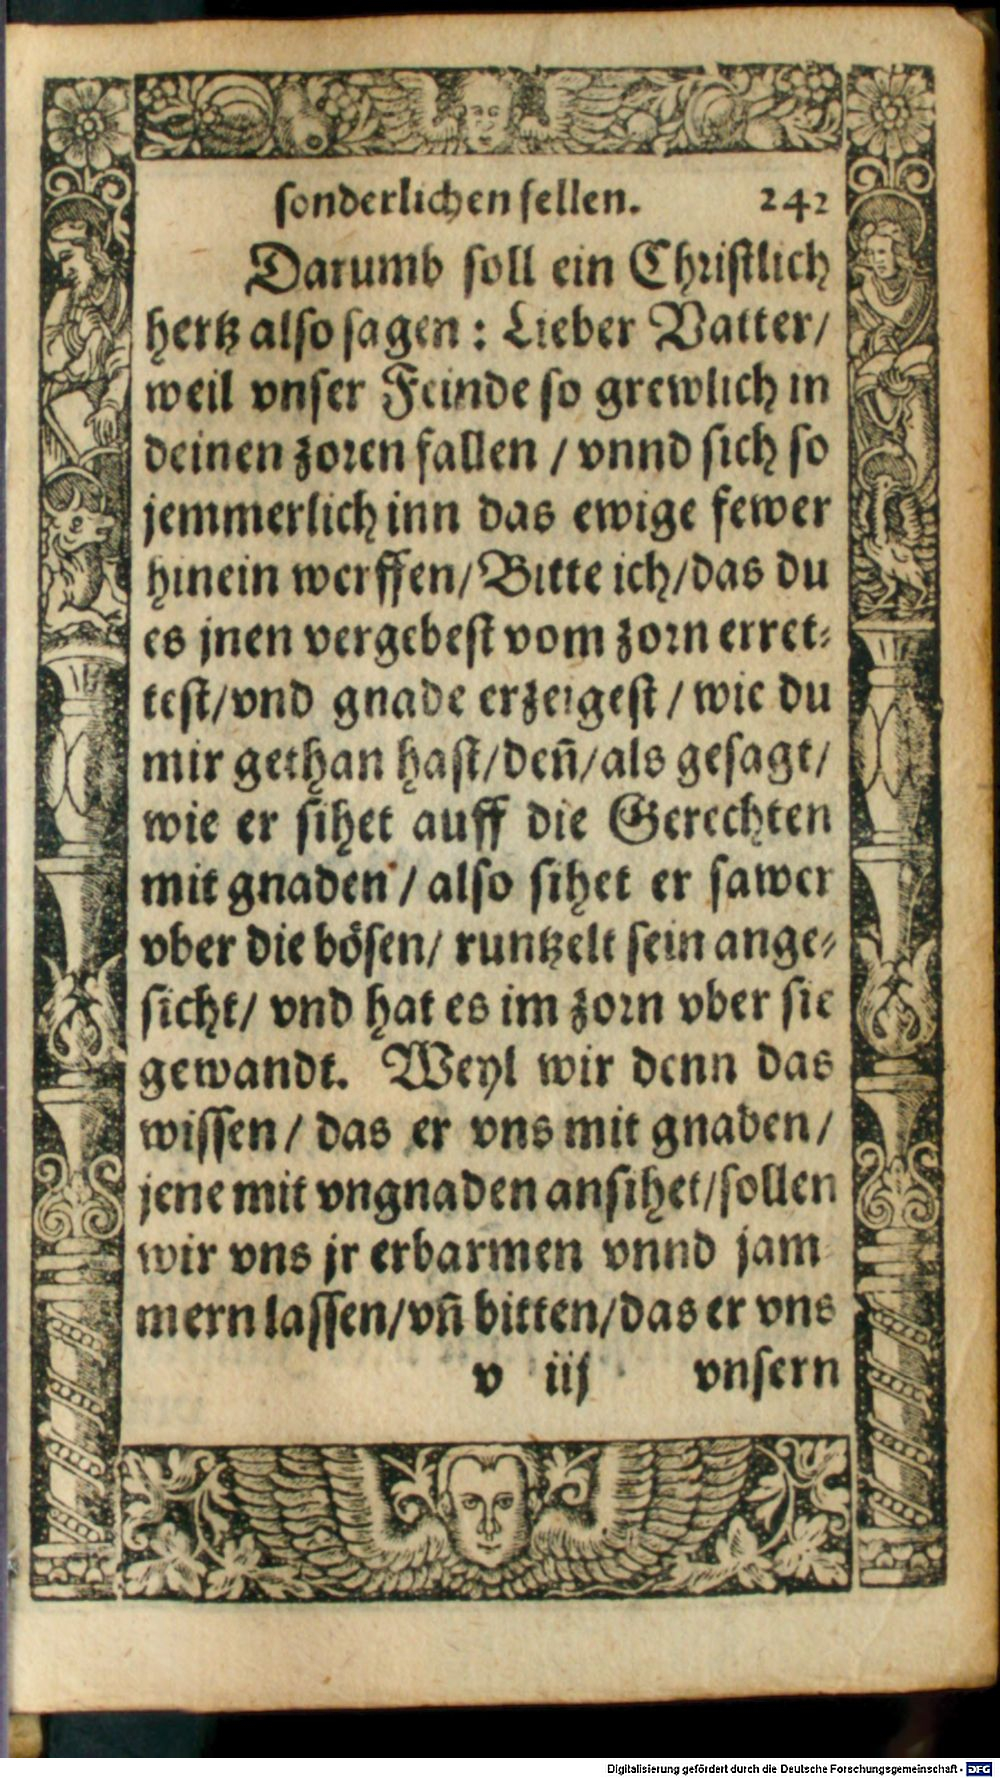 sonderlichen fellen. 242
Darumb soll ein Christlich
hertz also sagen : Lieber Vatter/
weil vnser Feinde so grewlich in
deinen zoren fallen / vnnd sich so
jemmerlich inn das ewige fewer
hinein werffen/ Bitte ich/das du
es jnen vergebest vom zorn erret-
test/vnd gnade erzeigest / wie du
mir gethan hast/deñ/als gesagt/
wie er sihet auff die Gerechten
mit gnaden / also sihet er sawer
vber die bösen/ runtzelt sein ange-
sicht/ vnd hat es im zorn vber sie
gewandt. Weyl wir denn das
wissen / das er vns mit gnaden/
jene mit vngnaden ansihet/sollen
wir vns jr erbarmen vnnd jam-
mern lassen/vñ bitten/das er vns
v iij vnsern
Digitalisierung gefördert durch die Deutsche Forschungsgemeinschaft - DFG